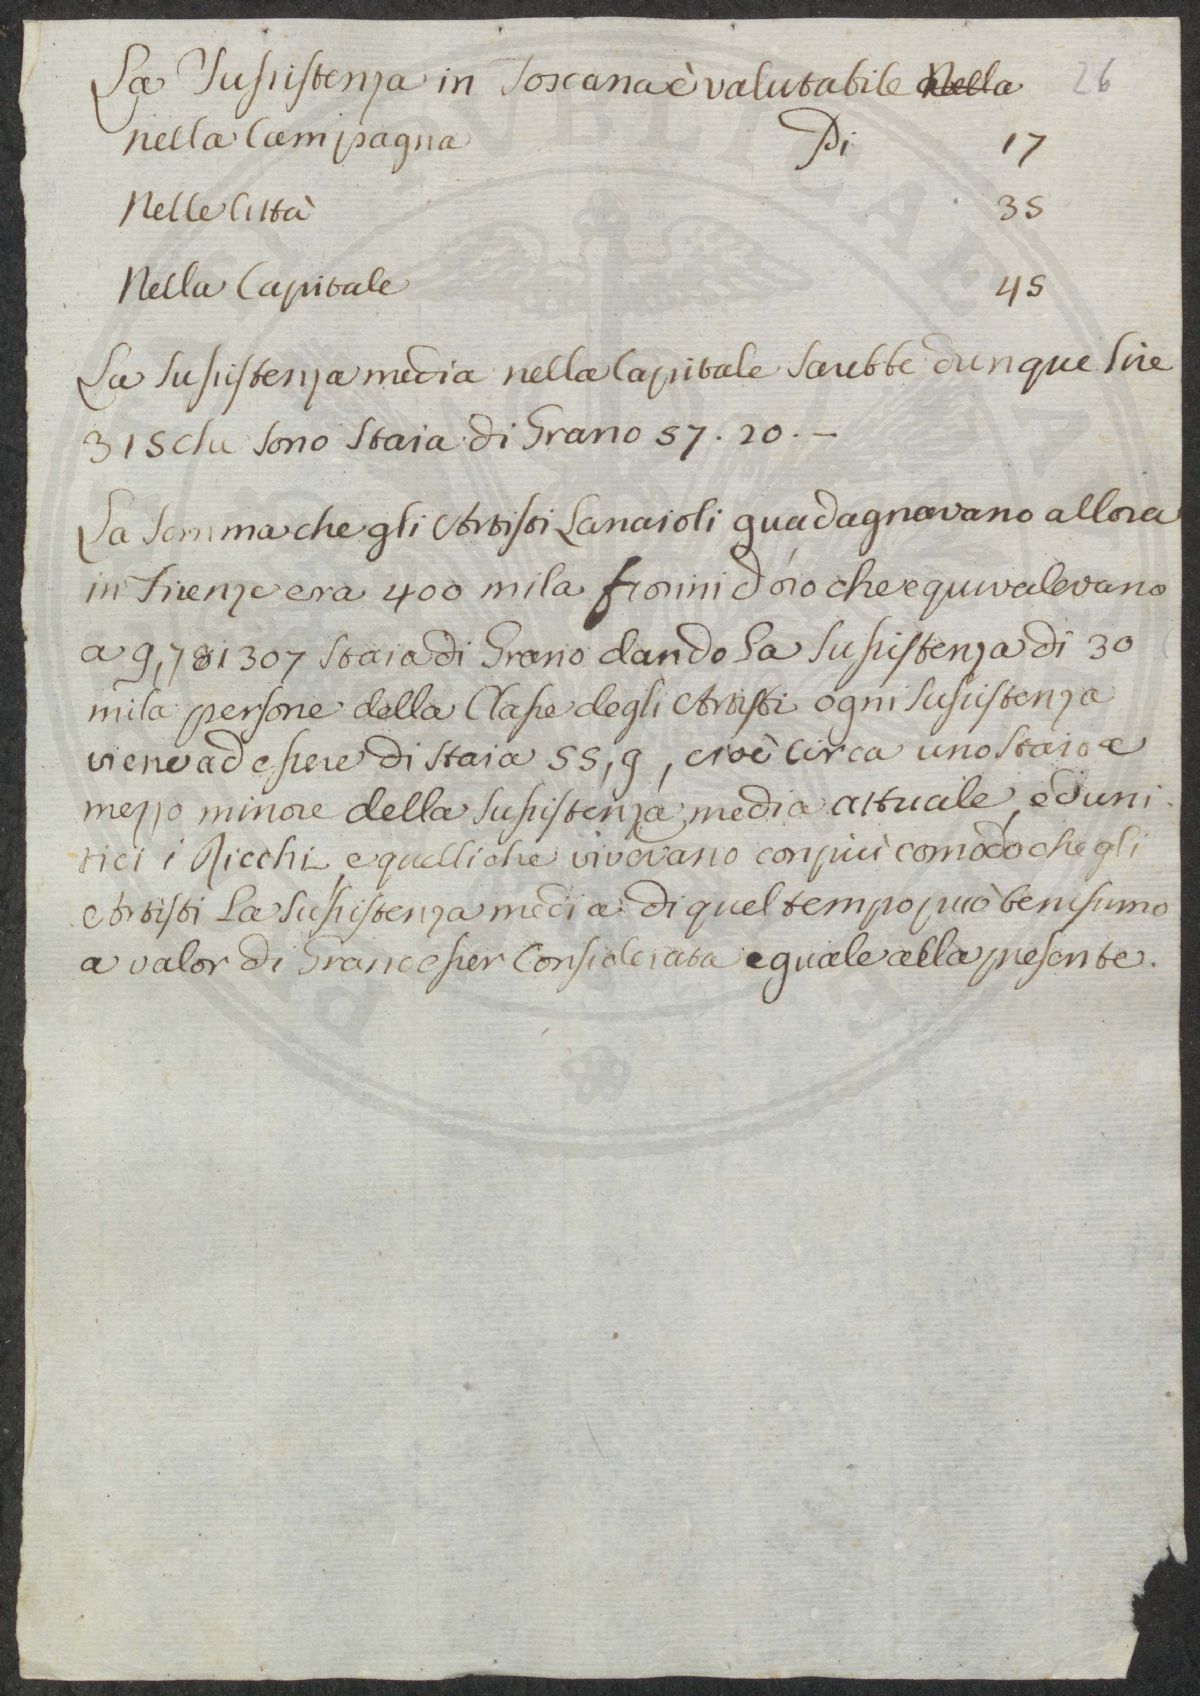 La Sussistenza in Toscana è valutabile Nella 26
nella Campagna Di 17
Nelle Città 35
Nella Capitale 45
La sussistenza media nella Capitale sarebbe dunque Lire
315 che sono Staia di Grano 57. 20. —
La somma che gli Artisti Lanaioli guadagnavano allora
in Firenze era 400 mila fiorini d'oro che equivalevano
a 9,781307 Staia di Grano dando La Sussistenza di 30
mila persone della Classe degli Artisti ogni sussistenza
viene ad essere di Staia 55,9, cioè circa uno Staio e
mezzo minore della sussistenza media attuale, ed uni
tici i Ricchi, e quelli che vivevano con più comodo che gli
Artisti La Sussistenza media di quel tempo può benissimo
a valor di Grano esser Considerata eguale alla presente.